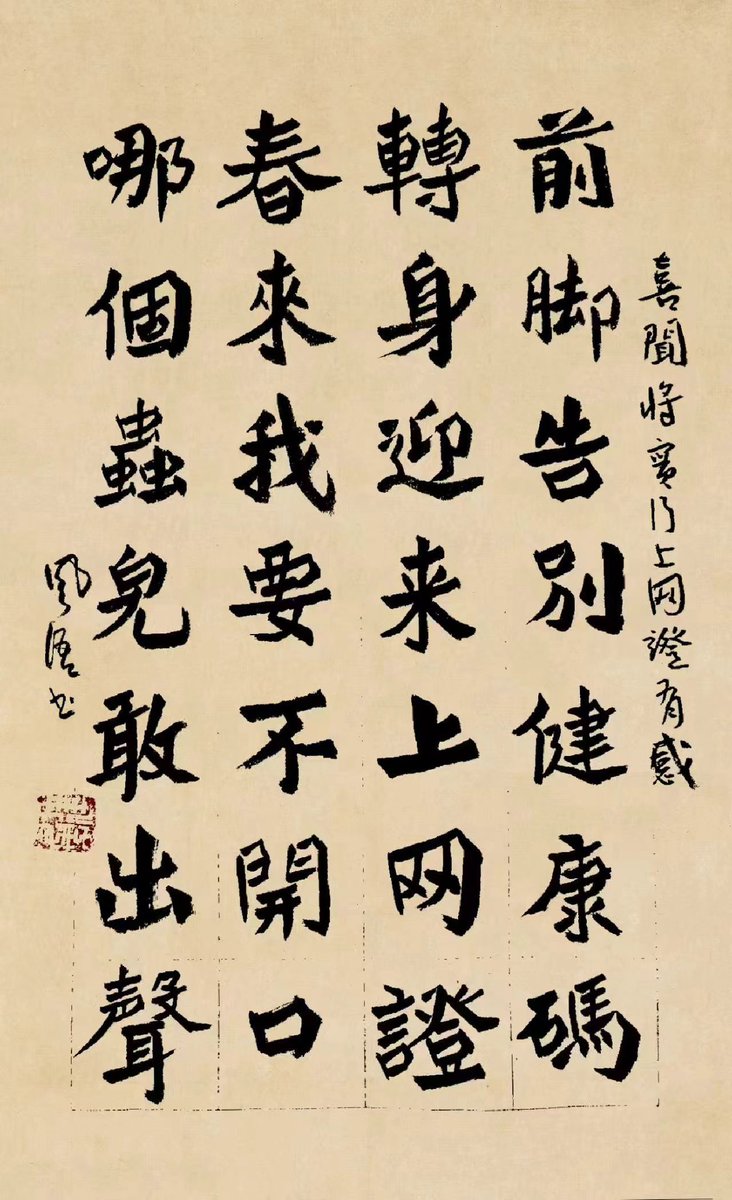 喜聞将實行上网證有感
前脚告别健康碼
轉身迎来上网證
春來我要不開口
哪個蟲兒敢出聲
风悟书